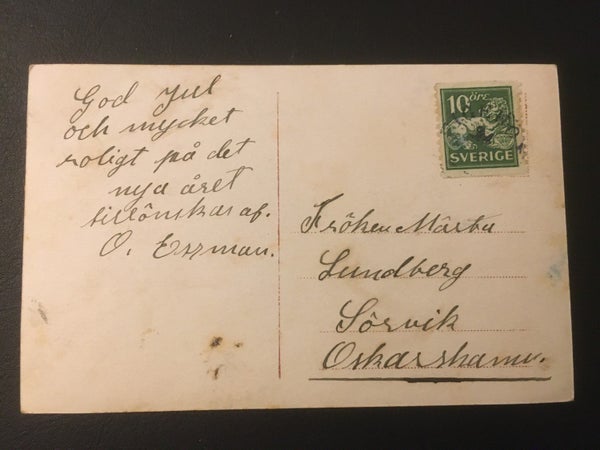 God Jul
och mycket
roligt på det
nya året
tillönskas af.
O. Essman.
10 ÖRE
SVERIGE
Fröken Märta
Lundberg
Sörvik
Oskarshamn.